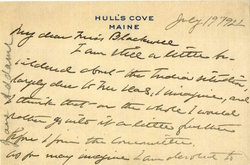 HULL'S COVE
MAINE
July 19 1922
My dear Miss Blackwell
I am still a little be-
wildered about the Indian situation,
largely due to Mrs , I imagine, and
I think that on the whole I would
rather hold it a little further
before I join the committee.
as far may imagine I am devoted to